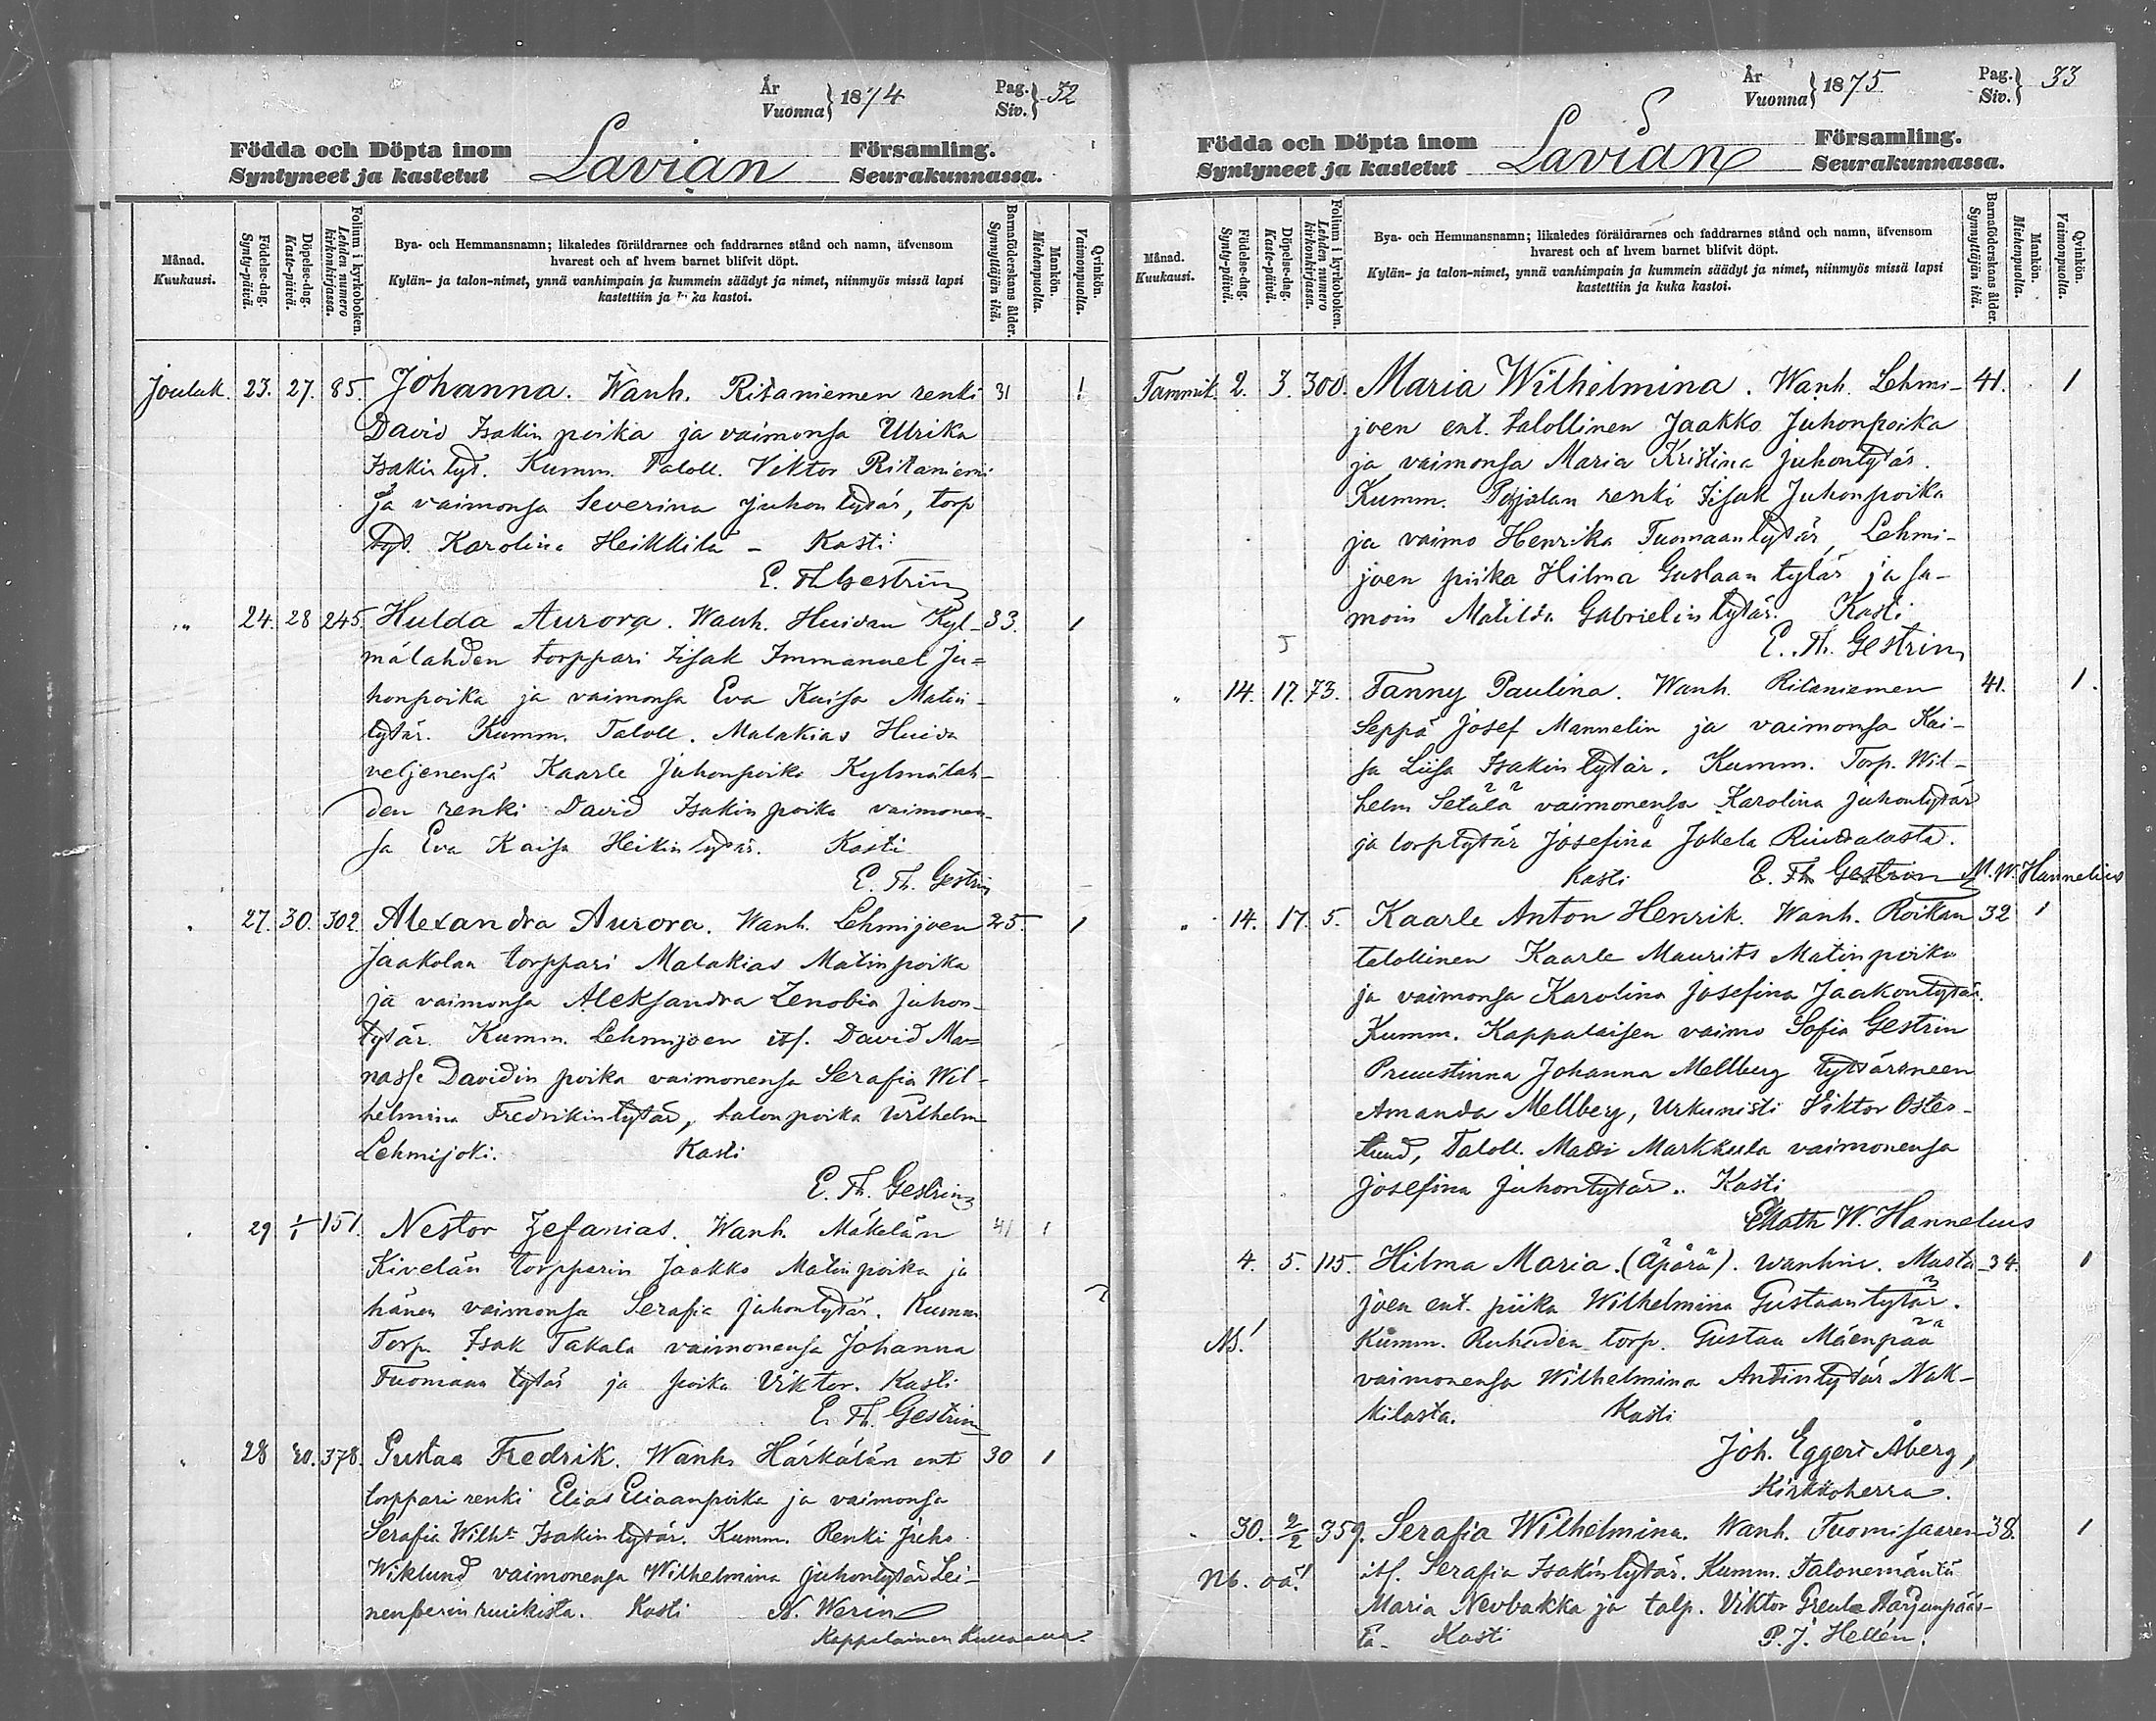 År
Vuonna } 1874
Pag.
Siv. } 32
Födda och Döpta inom
Syntyneet ja kastetut
Lavian
Församling.
Seurakunnassa.
Månad.
Kuukausi.
Födelse-dag.
Synty-päivä.
Döpelse-dag.
Kaste-päivä.
Folium i kyrkoboken.
Lehden numero
kirkonkirjassa.
Bya- och Hemmansnamn; likaledes föräldrarnes och faddrarnes stånd och namn, äfvensom
hvarest och af hvem barnet blifvit döpt.
Kylän- ja talon-nimet, ynnä vanhimpain ja kummein säädyt ja nimet, niinmyös missä lapsi
kastettiin ja kuka kastoi.
Barnaföderskans ålder.
Synnyttäjän ikä.
Mankön.
Miehenpuolta.
Qvinkön.
Vaimonpuolta.
Jouluk. 23. 27. 85. Johanna. Wanh. Ritaniemen renki 31 1
David Isakin poika ja vaimonsa Ulrika
Isakin tyt. Kumm. Taloll. Viktor Ritaniemi
ja vaimonsa Severina Juhon tytär, torp
tyt. Karolina Heikkilä – Kasti
E. Th Gestrin
" 24. 28 245. Hulda Aurora. Wanh. Huidan Kyl- 33. 1
mälahden torppari Iisak Immanuel Ju=
honpoika ja vaimonsa Eva Kaisa Matin-
tytär. Kumm. Taloll. Malakias Huida
veljenensä Kaarle Juhonpoika Kylmälah-
den renki David Isakin poika vaimonen-
sa Eva Kaisa Heikin tytär. Kasti
E. Th. Gestrin
" 27. 30. 302 Alexandra Aurora. Wanh. Lehmijoen 25. 1
Jaakolan torppari Malakias Matinpoika
ja vaimonsa Aleksandra Zenobia Juhon-
tytär. Kumm. Lehmijoen its. David Ma=
nasse Davidin poika vaimonensa Serafia Wil-
helmina Fredrikintytär, talonpoika Wilhelm
Lehmijoki. Kasti
E. Th. Gestrin
" 29 1/1 151 Nestor Zefanias. Wanh. Mäkelän 41 1
Kivelän torpparin Jaakko Matinpoika ja
hänen vaimonsa Serafia Juhontytär. Kumm.
Torp. Isak Takala vaimonensa Johanna
Tuomaan tytär ja poika Viktor. Kasti
E. Th. Gestrin
" 28 30. 378. Gustaa Fredrik. Wanh. Härkälän ent 30 1
torppari renki Elias Eliaanpoika ja vaimonsa
Serafia Wilh. Isakin tytär. Kumm. Renki Juho
Wiklund vaimonensa Wilhelmina Juhontytär Lei-
Kasti N. Werin
Kappalainen
År
Vuonna } 1875
Pag.
Siv. } 33
Födda och Döpta inom
Syntyneet ja kastetut
Lavian
Församling.
Seurakunnassa.
Månad.
Kuukausi.
Födelse-dag.
Synty-päivä.
Döpelse-dag.
Kaste-päivä.
Folium i kyrkoboken.
Lehden numero
kirkonkirjassa.
Bya- och Hemmansnamn; likaledes föräldrarnes och faddrarnes stånd och namn, äfvensom
hvarest och af hvem barnet blifvit döpt.
Kylän- ja talon-nimet, ynnä vanhimpain ja kummein säädyt ja nimet, niinmyös missä lapsi
kastettiin ja kuka kastoi.
Barnaföderskans ålder.
Synnyttäjän ikä.
Mankön.
Miehenpuolta.
Qvinkön.
Vaimonpuolta.
Tammik. 2. 3. 300. Maria Wilhelmina. Wanh. Lehmi- 41. 1
joen ent. talollinen Jaakko Juhonpoika
ja vaimonsa Maria Kristina Juhontytär.
Kumm. Pojalan renki Iisak Juhonpoika
ja vaimo Henrika Tuomaantytär, Lehmi-
joen piika Hilma Gustaan tytär ja sa-
moin Matilda Gabrielin tytär. Kasti
E. Th. Gestrin
" 14. 17. 73. Fanny Paulina. Wanh. Ritaniemen 41. 1.
Seppä Josef Mannelin ja vaimonsa Kai-
sa Liisa Isakin tytär. Kumm. Torp. Wil-
helm Setälä vaimonensa Karolina Juhontytär
ja torptytär Josefina Jokela Riudalasta.
Kasti E. Th Gestrin M. W. Hannelius
" 14. 17. 5. Kaarle Anton Henrik. Wanh. Roikan 32 1
talollinen Kaarle Maurits Matinpoika
ja vaimonsa Karolina Josefina Jaakontytär.
Kumm. Kappalaisen vaimo Sofia Gestrin
Pruustinna Johanna Mellberg tyttäreneen
Amanda Mellberg, Urkunisti Viktor Öster-
lund, Taloll. Matti Markkula vaimonensa
Josefina Juhontytär. Kasti
Math W. Hannelius
4. 5. 115. Hilma Maria. (äpärä). Wanhin. Musta- 34. 1
joen ent. piika Wilhelmina Gustaantytär.
Nb! Kumm. Ruhaden torp. Gustaa Mäenpää
vaimonensa Wilhelmina Antintytär Nak-
kilasta. Kasti
Joh. Eggert Åberg,
Kirkkoherra.
" 30. 2/2 359. Serafia Wilhelmina. Wanh. Tuomisaaren 38. 1
Nb. oä! its. Serafia Isakin tytär. Kumm. Talonemäntä
Maria Nevbakka ja talp. Viktor Greula Harjunpääs-
tä. Kasti P. J. Hellén.